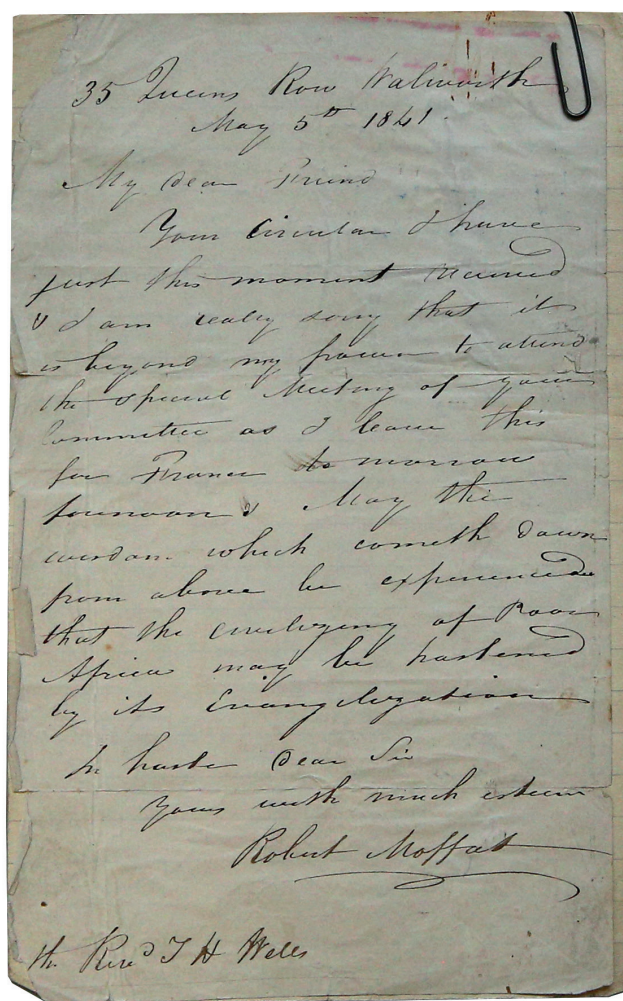 35 Queens Row Walworth
May 5th 1841
My dear Friend
Your Circular I have
just this moment received
& I am really sorry that it
is beyond my power to attend
the special Meeting of your
Committee as I leave this
for France to morrow
forenoon. May the
wisdom which cometh down
from above be experienced
that the civilizing of Poor
Africa may be hastened
by its Evangelization
In haste dear Sir
Yours with much esteem
Robert Moffat
the Revd T H Wells